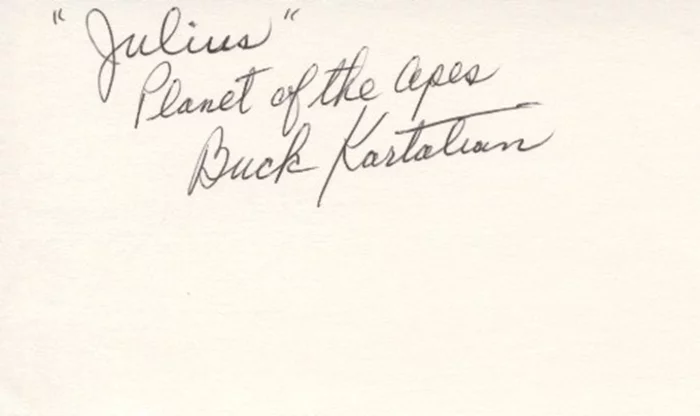 "Julius"
Planet of the Apes
Buck Kartalian